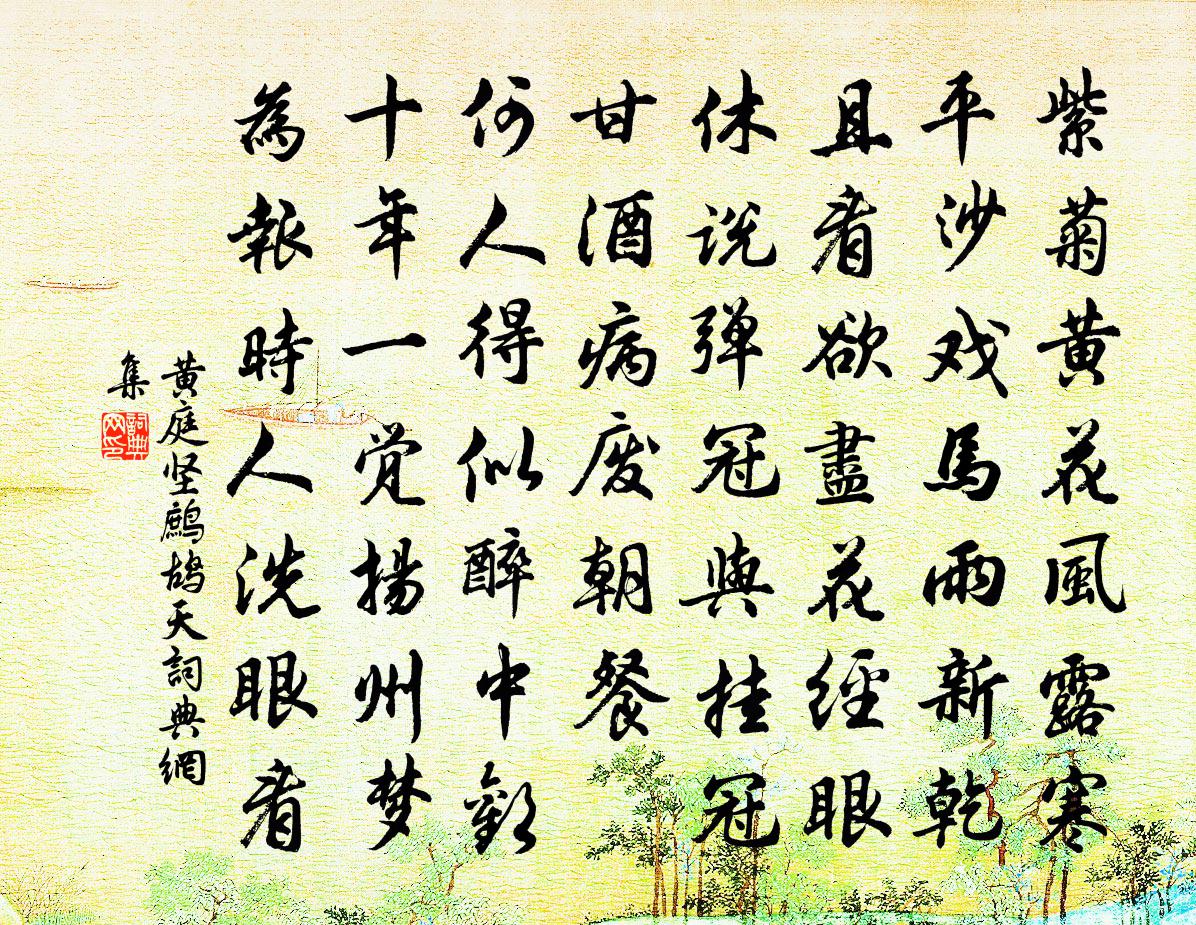 紫菊黄花風露寒
平沙戏馬雨新乾
且看欲盡花經眼
休说弹冠與挂冠
甘酒病废朝餐
何人得似醉中歡
十年一觉揚州梦
為報時人洗眼看
黄庭坚鷓鴣天詞典網
集
詞典网印